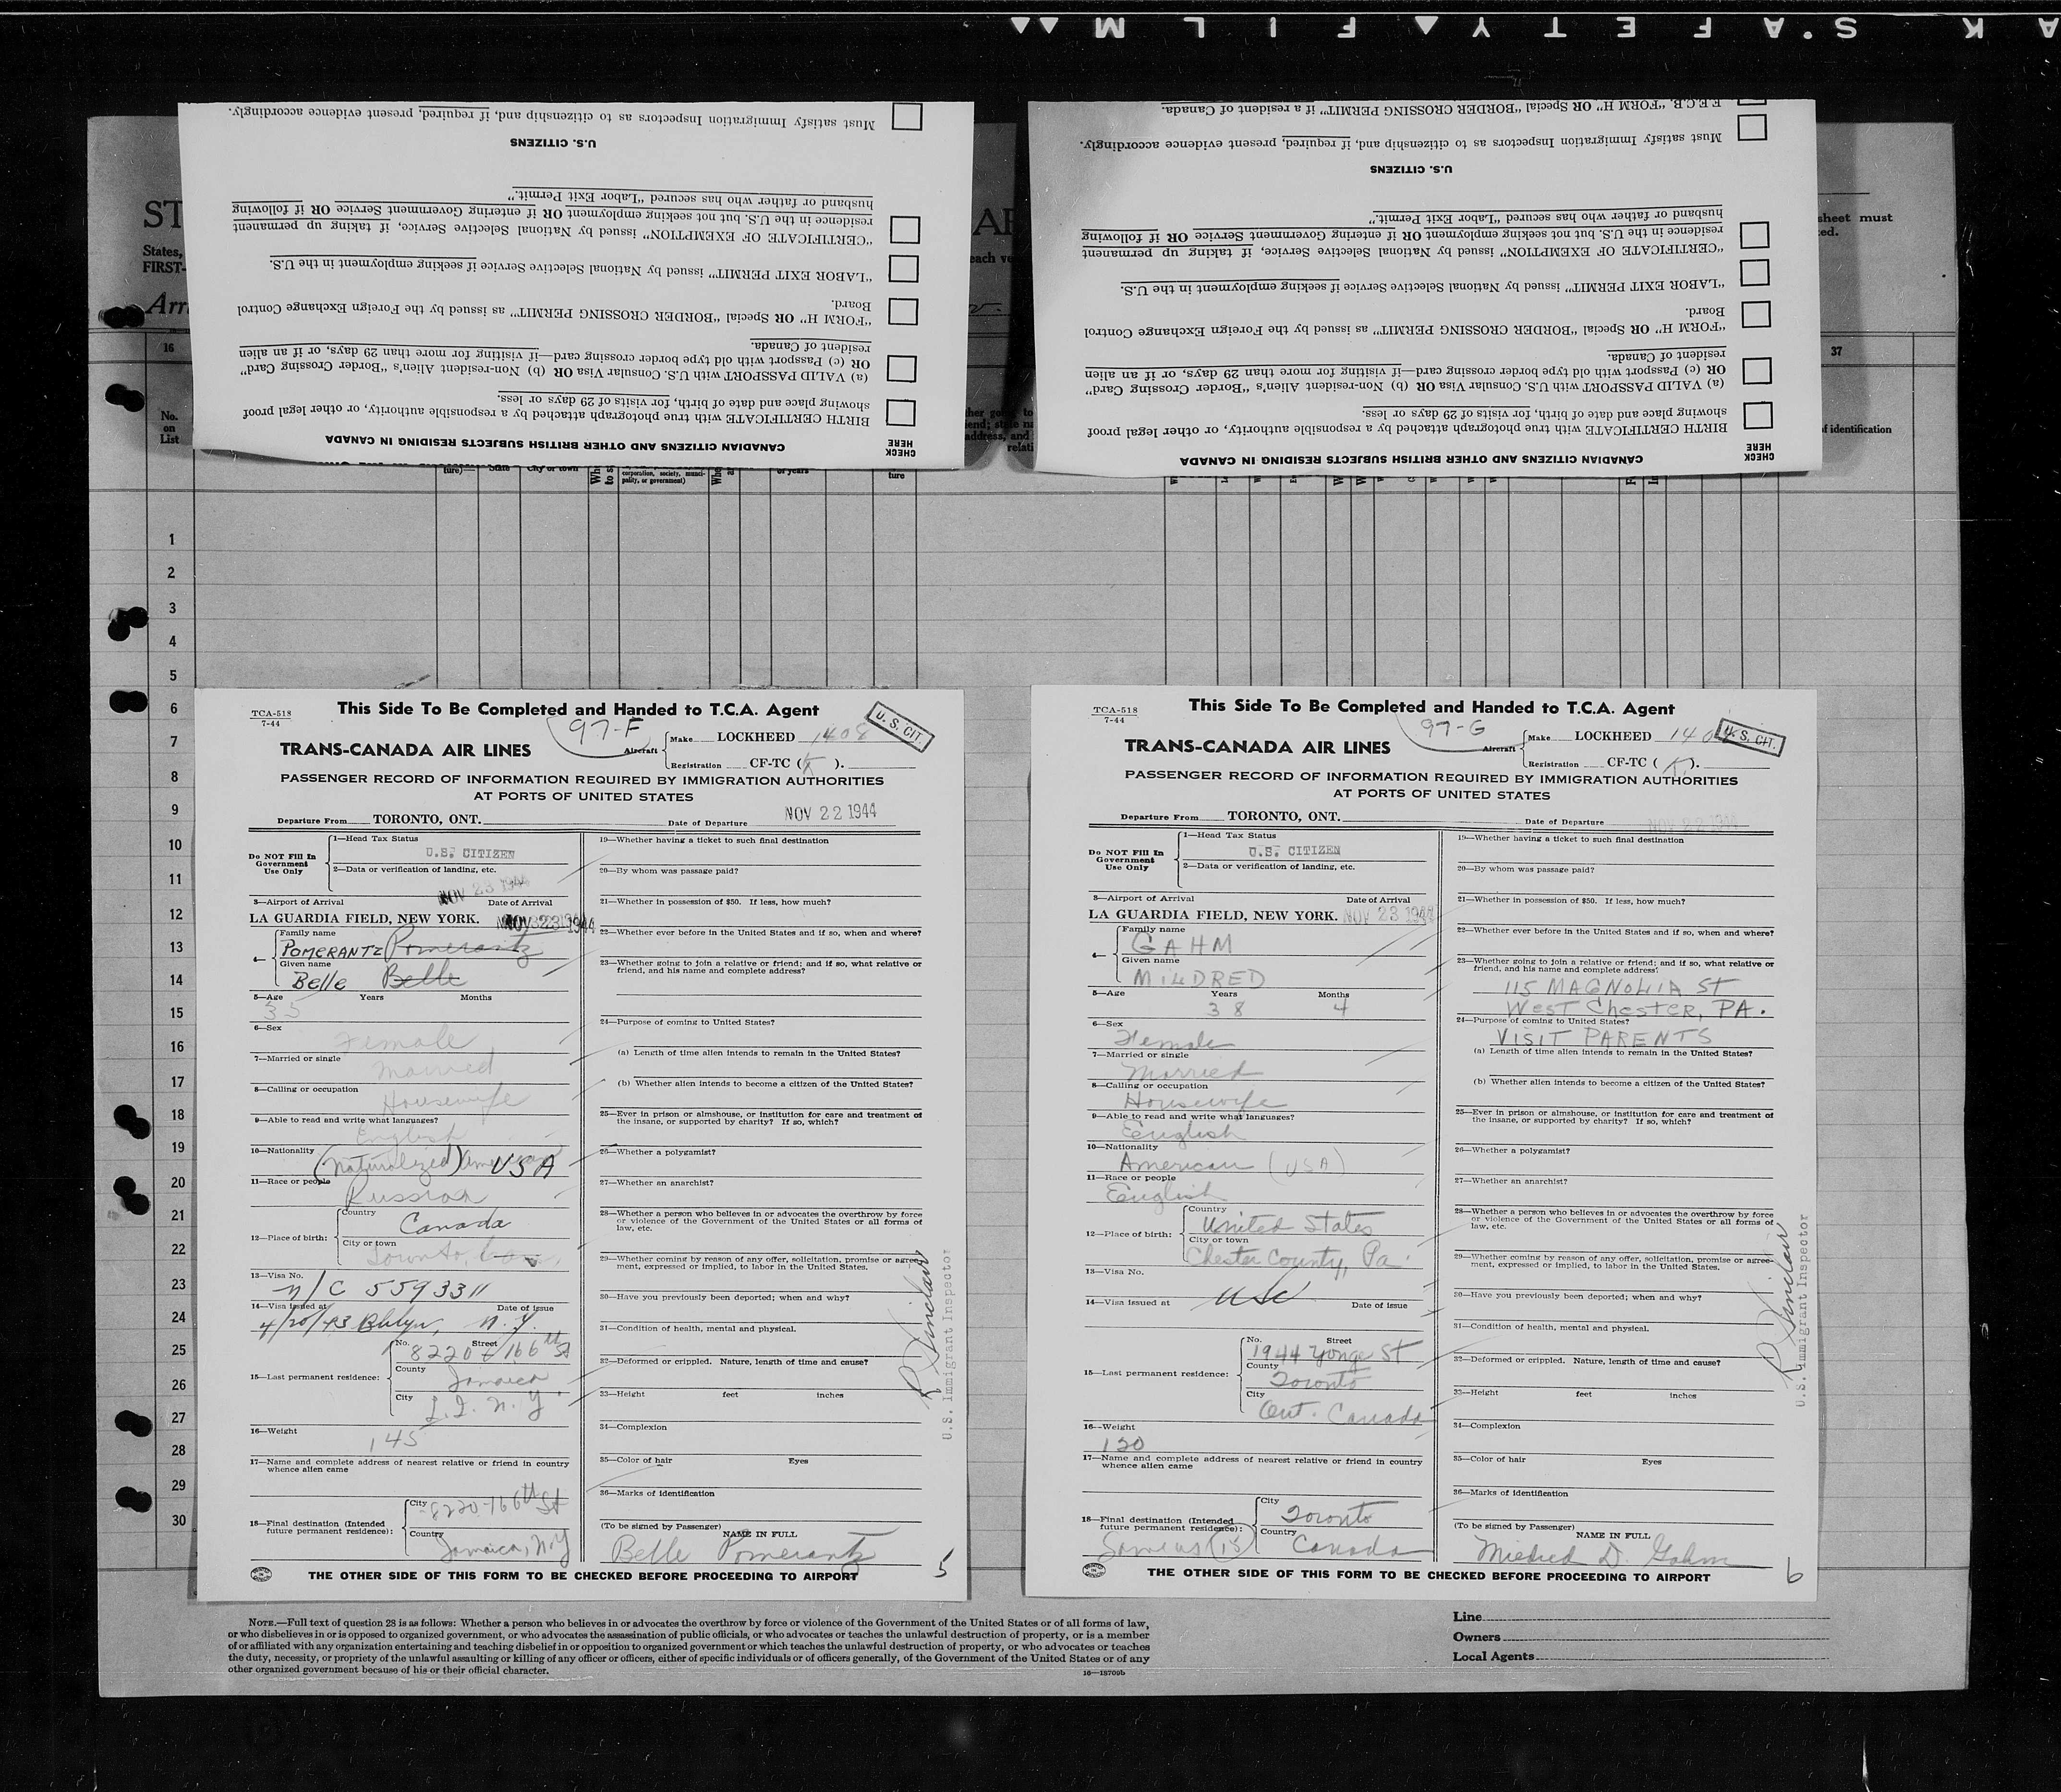 A K S.A F E T Y ▲ F I L M ▲▲
Must satisfy Immigration Inspectors as to citizenship and, if required, present evidence accordingly.
U.S. CITIZENS
husband or father who has secured "Labor Exit Permit."
residence in the U.S. but not seeking employment OR if entering Government Service OR if following
"CERTIFICATE OF EXEMPTION" issued by National Selective Service, if taking up permanent
"LABOR EXIT PERMIT" issued by National Selective Service if seeking employment in the U.S.
Board.
"FORM H" OR Special "BORDER CROSSING PERMIT" as issued by the Foreign Exchange Control
resident of Canada.
OR (c) Passport with old type border crossing card—if visiting for more than 29 days, or if an alien
(a) VALID PASSPORT with U.S. Consular Visa OR (b) Non-resident Alien's "Border Crossing Card"
showing place and date of birth, for visits of 29 days or less.
BIRTH CERTIFICATE with true photograph attached by a responsible authority, or other legal proof
CANADIAN CITIZENS AND OTHER BRITISH SUBJECTS RESIDING IN CANADA
CHECK HERE
F.E.C.B. "FORM H" OR Special "BORDER CROSSING PERMIT" if a resident of Canada.
Must satisfy Immigration Inspectors as to citizenship and, if required, present evidence accordingly.
U.S. CITIZENS
husband or father who has secured "Labor Exit Permit."
residence in the U.S. but not seeking employment OR if entering Government Service OR if following
"CERTIFICATE OF EXEMPTION" issued by National Selective Service, if taking up permanent
"LABOR EXIT PERMIT" issued by National Selective Service if seeking employment in the U.S.
Board.
"FORM H" OR Special "BORDER CROSSING PERMIT" as issued by the Foreign Exchange Control
resident of Canada.
OR (c) Passport with old type border crossing card—if visiting for more than 29 days, or if an alien
(a) VALID PASSPORT with U.S. Consular Visa OR (b) Non-resident Alien's "Border Crossing Card"
showing place and date of birth, for visits of 29 days or less.
BIRTH CERTIFICATE with true photograph attached by a responsible authority, or other legal proof
CANADIAN CITIZENS AND OTHER BRITISH SUBJECTS RESIDING IN CANADA
CHECK HERE
ST
States,
FIRST-
Arr
sheet must
16
37
No. on List
of identification
State
City or town
corporation, society, munici-
pality, or government)
of years
ture
1
2
3
4
5
6
7
8
9
10
11
12
13
14
15
16
17
18
19
20
21
22
23
24
25
26
27
28
29
30
TCA-518
7-44
This Side To Be Completed and Handed to T.C.A. Agent
97-F
U. S. CIT.
TRANS-CANADA AIR LINES
Aircraft
Make LOCKHEED 1408
Registration CF-TC (K).
PASSENGER RECORD OF INFORMATION REQUIRED BY IMMIGRATION AUTHORITIES
AT PORTS OF UNITED STATES
Departure From TORONTO, ONT. Date of Departure NOV 22 1944
Do NOT Fill In Government Use Only
1—Head Tax Status
U.S. CITIZEN
2—Data or verification of landing, etc.
NOV 23 1944
3—Airport of Arrival Date of Arrival
LA GUARDIA FIELD, NEW YORK. NOV 23 1944
4— Family name
POMERANTZ Pomerantz
Given name
Belle Belle
5—Age Years Months
35
6—Sex
Female
7—Married or single
Married
8—Calling or occupation
Housewife
9—Able to read and write what languages?
English
10—Nationality
(Naturalized) American USA
11—Race or people
Russian
12—Place of birth:
Country
Canada
City or town
Toronto, Can.
13—Visa No.
n/C 5593311
14—Visa issued at Date of issue
4/20/43 Bklyn, N.Y.
15—Last permanent residence:
No. Street
8220 - 166th St
County
Jamaica
City
L.I. N.Y.
16—Weight
145
17—Name and complete address of nearest relative or friend in country
whence alien came
18—Final destination (Intended
future permanent residence):
City
8220-166th St
Country
Jamaica, N.Y
19—Whether having a ticket to such final destination
20—By whom was passage paid?
21—Whether in possession of $50. If less, how much?
22—Whether ever before in the United States and if so, when and where?
23—Whether going to join a relative or friend; and if so, what relative or
friend, and his name and complete address?
24—Purpose of coming to United States?
(a) Length of time alien intends to remain in the United States?
(b) Whether alien intends to become a citizen of the United States?
25—Ever in prison or almshouse, or institution for care and treatment of
the insane, or supported by charity? If so, which?
26—Whether a polygamist?
27—Whether an anarchist?
28—Whether a person who believes in or advocates the overthrow by force
or violence of the Government of the United States or all forms of
law, etc.
29—Whether coming by reason of any offer, solicitation, promise or agree-
ment, expressed or implied, to labor in the United States.
30—Have you previously been deported; when and why?
31—Condition of health, mental and physical.
32—Deformed or crippled. Nature, length of time and cause?
33—Height feet inches
34—Complexion
35—Color of hair Eyes
36—Marks of identification
(To be signed by Passenger)
NAME IN FULL
Belle Pomerantz
R Sinclair
U.S. Immigrant Inspector
5
THE OTHER SIDE OF THIS FORM TO BE CHECKED BEFORE PROCEEDING TO AIRPORT
TCA-518
7-44
This Side To Be Completed and Handed to T.C.A. Agent
97-G
U. S. CIT.
TRANS-CANADA AIR LINES
Aircraft
Make LOCKHEED 1408
Registration CF-TC (K).
PASSENGER RECORD OF INFORMATION REQUIRED BY IMMIGRATION AUTHORITIES
AT PORTS OF UNITED STATES
Departure From TORONTO, ONT. Date of Departure NOV 22 1944
Do NOT Fill In Government Use Only
1—Head Tax Status
U.S. CITIZEN
2—Data or verification of landing, etc.
3—Airport of Arrival Date of Arrival
LA GUARDIA FIELD, NEW YORK. NOV 23 1944
4— Family name
GAHM
Given name
MILDRED
5—Age Years Months
38 4
6—Sex
Female
7—Married or single
Married
8—Calling or occupation
Housewife
9—Able to read and write what languages?
English
10—Nationality
American (USA)
11—Race or people
English
12—Place of birth:
Country
United States
City or town
Chester County, Pa.
13—Visa No.
USC
14—Visa issued at Date of issue
15—Last permanent residence:
No. Street
1944 Yonge St
County
Toronto
City
Ont. Canada
16—Weight
120
17—Name and complete address of nearest relative or friend in country
whence alien came
18—Final destination (Intended
future permanent residence):
Same as (15)
City
Toronto
Country
Canada
19—Whether having a ticket to such final destination
20—By whom was passage paid?
21—Whether in possession of $50. If less, how much?
22—Whether ever before in the United States and if so, when and where?
23—Whether going to join a relative or friend; and if so, what relative or
friend, and his name and complete address?
115 MAGNOLIA ST
WEST CHESTER, PA.
24—Purpose of coming to United States?
VISIT PARENTS
(a) Length of time alien intends to remain in the United States?
(b) Whether alien intends to become a citizen of the United States?
25—Ever in prison or almshouse, or institution for care and treatment of
the insane, or supported by charity? If so, which?
26—Whether a polygamist?
27—Whether an anarchist?
28—Whether a person who believes in or advocates the overthrow by force
or violence of the Government of the United States or all forms of
law, etc.
29—Whether coming by reason of any offer, solicitation, promise or agree-
ment, expressed or implied, to labor in the United States.
30—Have you previously been deported; when and why?
31—Condition of health, mental and physical.
32—Deformed or crippled. Nature, length of time and cause?
33—Height feet inches
34—Complexion
35—Color of hair Eyes
36—Marks of identification
(To be signed by Passenger)
NAME IN FULL
Mildred D. Gahm
R Sinclair
U.S. Immigrant Inspector
6
THE OTHER SIDE OF THIS FORM TO BE CHECKED BEFORE PROCEEDING TO AIRPORT
NOTE.—Full text of question 28 is as follows: Whether a person who believes in or advocates the overthrow by force or violence of the Government of the United States or of all forms of law,
or who disbelieves in or is opposed to organized government, or who advocates the assassination of public officials, or who advocates or teaches the unlawful destruction of property, or is a member
of or affiliated with any organization entertaining and teaching disbelief in or opposition to organized government or which teaches the unlawful destruction of property, or who advocates or teaches
the duty, necessity, or propriety of the unlawful assaulting or killing of any officer or officers, either of specific individuals or of officers generally, of the Government of the United States or of any
other organized government because of his or their official character.
16—18709b
Line
Owners
Local Agents